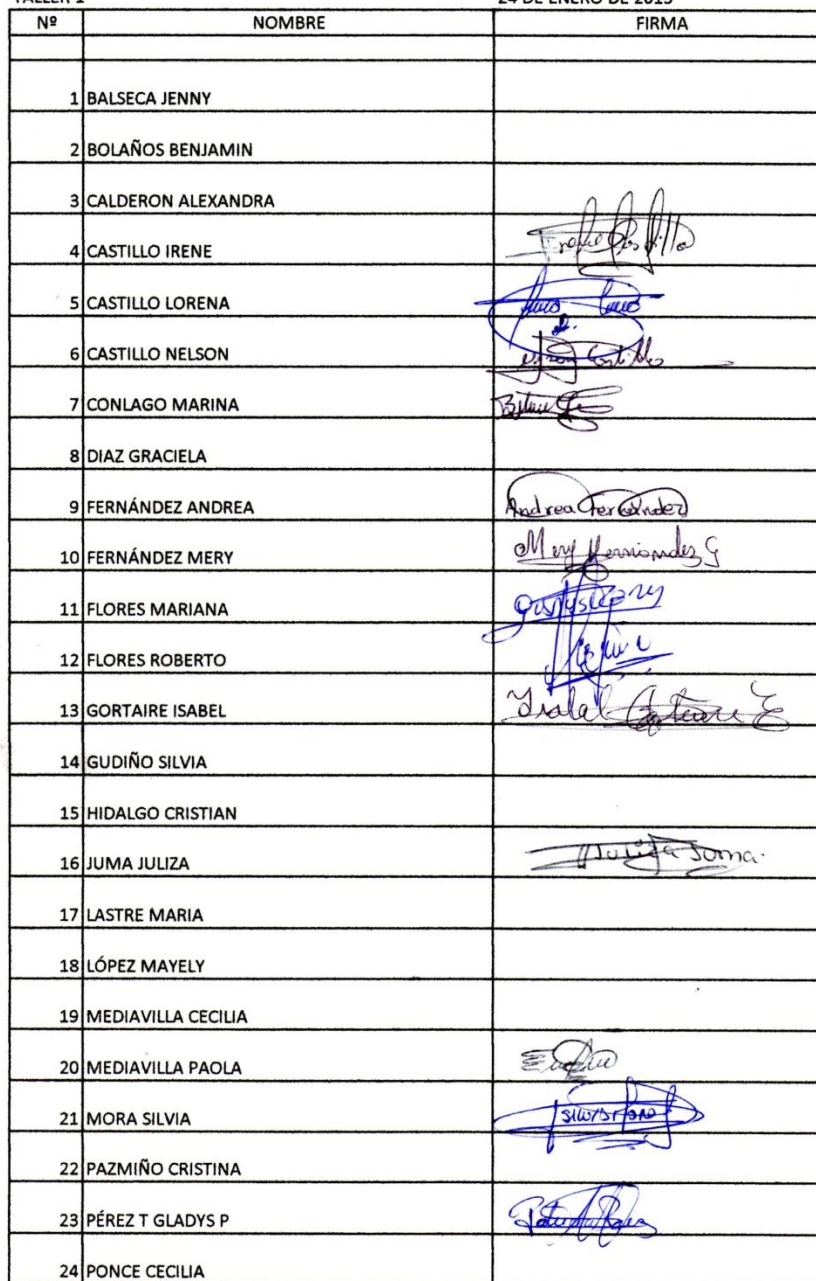 TALLER 1 24 DE ENERO DE 2015
Nº NOMBRE FIRMA
1 BALSECA JENNY
2 BOLAÑOS BENJAMIN
3 CALDERON ALEXANDRA
4 CASTILLO IRENE
5 CASTILLO LORENA
6 CASTILLO NELSON Castillo
7 CONLAGO MARINA
8 DIAZ GRACIELA
9 FERNÁNDEZ ANDREA Andrea Fernández
10 FERNÁNDEZ MERY Mery Fernández G
11 FLORES MARIANA
12 FLORES ROBERTO
13 GORTAIRE ISABEL Isabel Gortaire E
14 GUDIÑO SILVIA
15 HIDALGO CRISTIAN
16 JUMA JULIZA Juliza Juma
17 LASTRE MARIA
18 LÓPEZ MAYELY
19 MEDIAVILLA CECILIA
20 MEDIAVILLA PAOLA
21 MORA SILVIA
22 PAZMIÑO CRISTINA
23 PÉREZ T GLADYS P
24 PONCE CECILIA